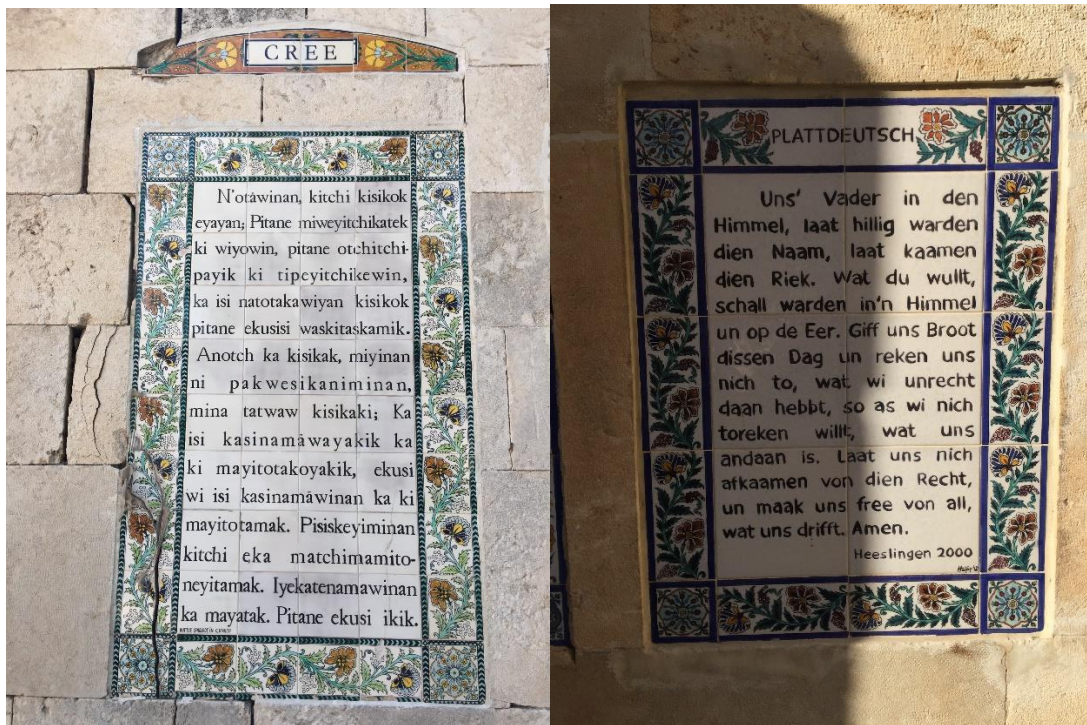 CREE
N'otàwinan, kitchi kisikok
eyayan; Pitane miweyitchikatek
ki wiyowin, pitane otchitchi-
payik ki tipeyitchikewin,
ka isi natotakawiyan kisikok
pitane ekusisi waskitaskamik.
Anotch ka kisikak, miyinan
ni pakwesikaniminan,
mina tatwaw kisikaki; Ka
isi kasinamàwayakik ka
ki mayitotakoyakik, ekusi
wi isi kasinamàwinan ka ki
mayitotamak. Pisiskeyiminan
kitchi eka matchimamito-
neyitamak. Iyekatenamawinan
ka mayatak. Pitane ekusi ikik.
PLATTDEUTSCH
Uns' Vader in den
Himmel, laat hillig warden
dien Naam, laat kaamen
dien Riek. Wat du wullt,
schall warden in'n Himmel
un op de Eer. Giff uns Broot
dissen Dag un reken uns
nich to, wat wi unrecht
daan hebbt, so as wi nich
toreken willt, wat uns
andaan is. Laat uns nich
afkaamen von dien Recht,
un maak uns free von all,
wat uns drifft. Amen.
Heeslingen 2000